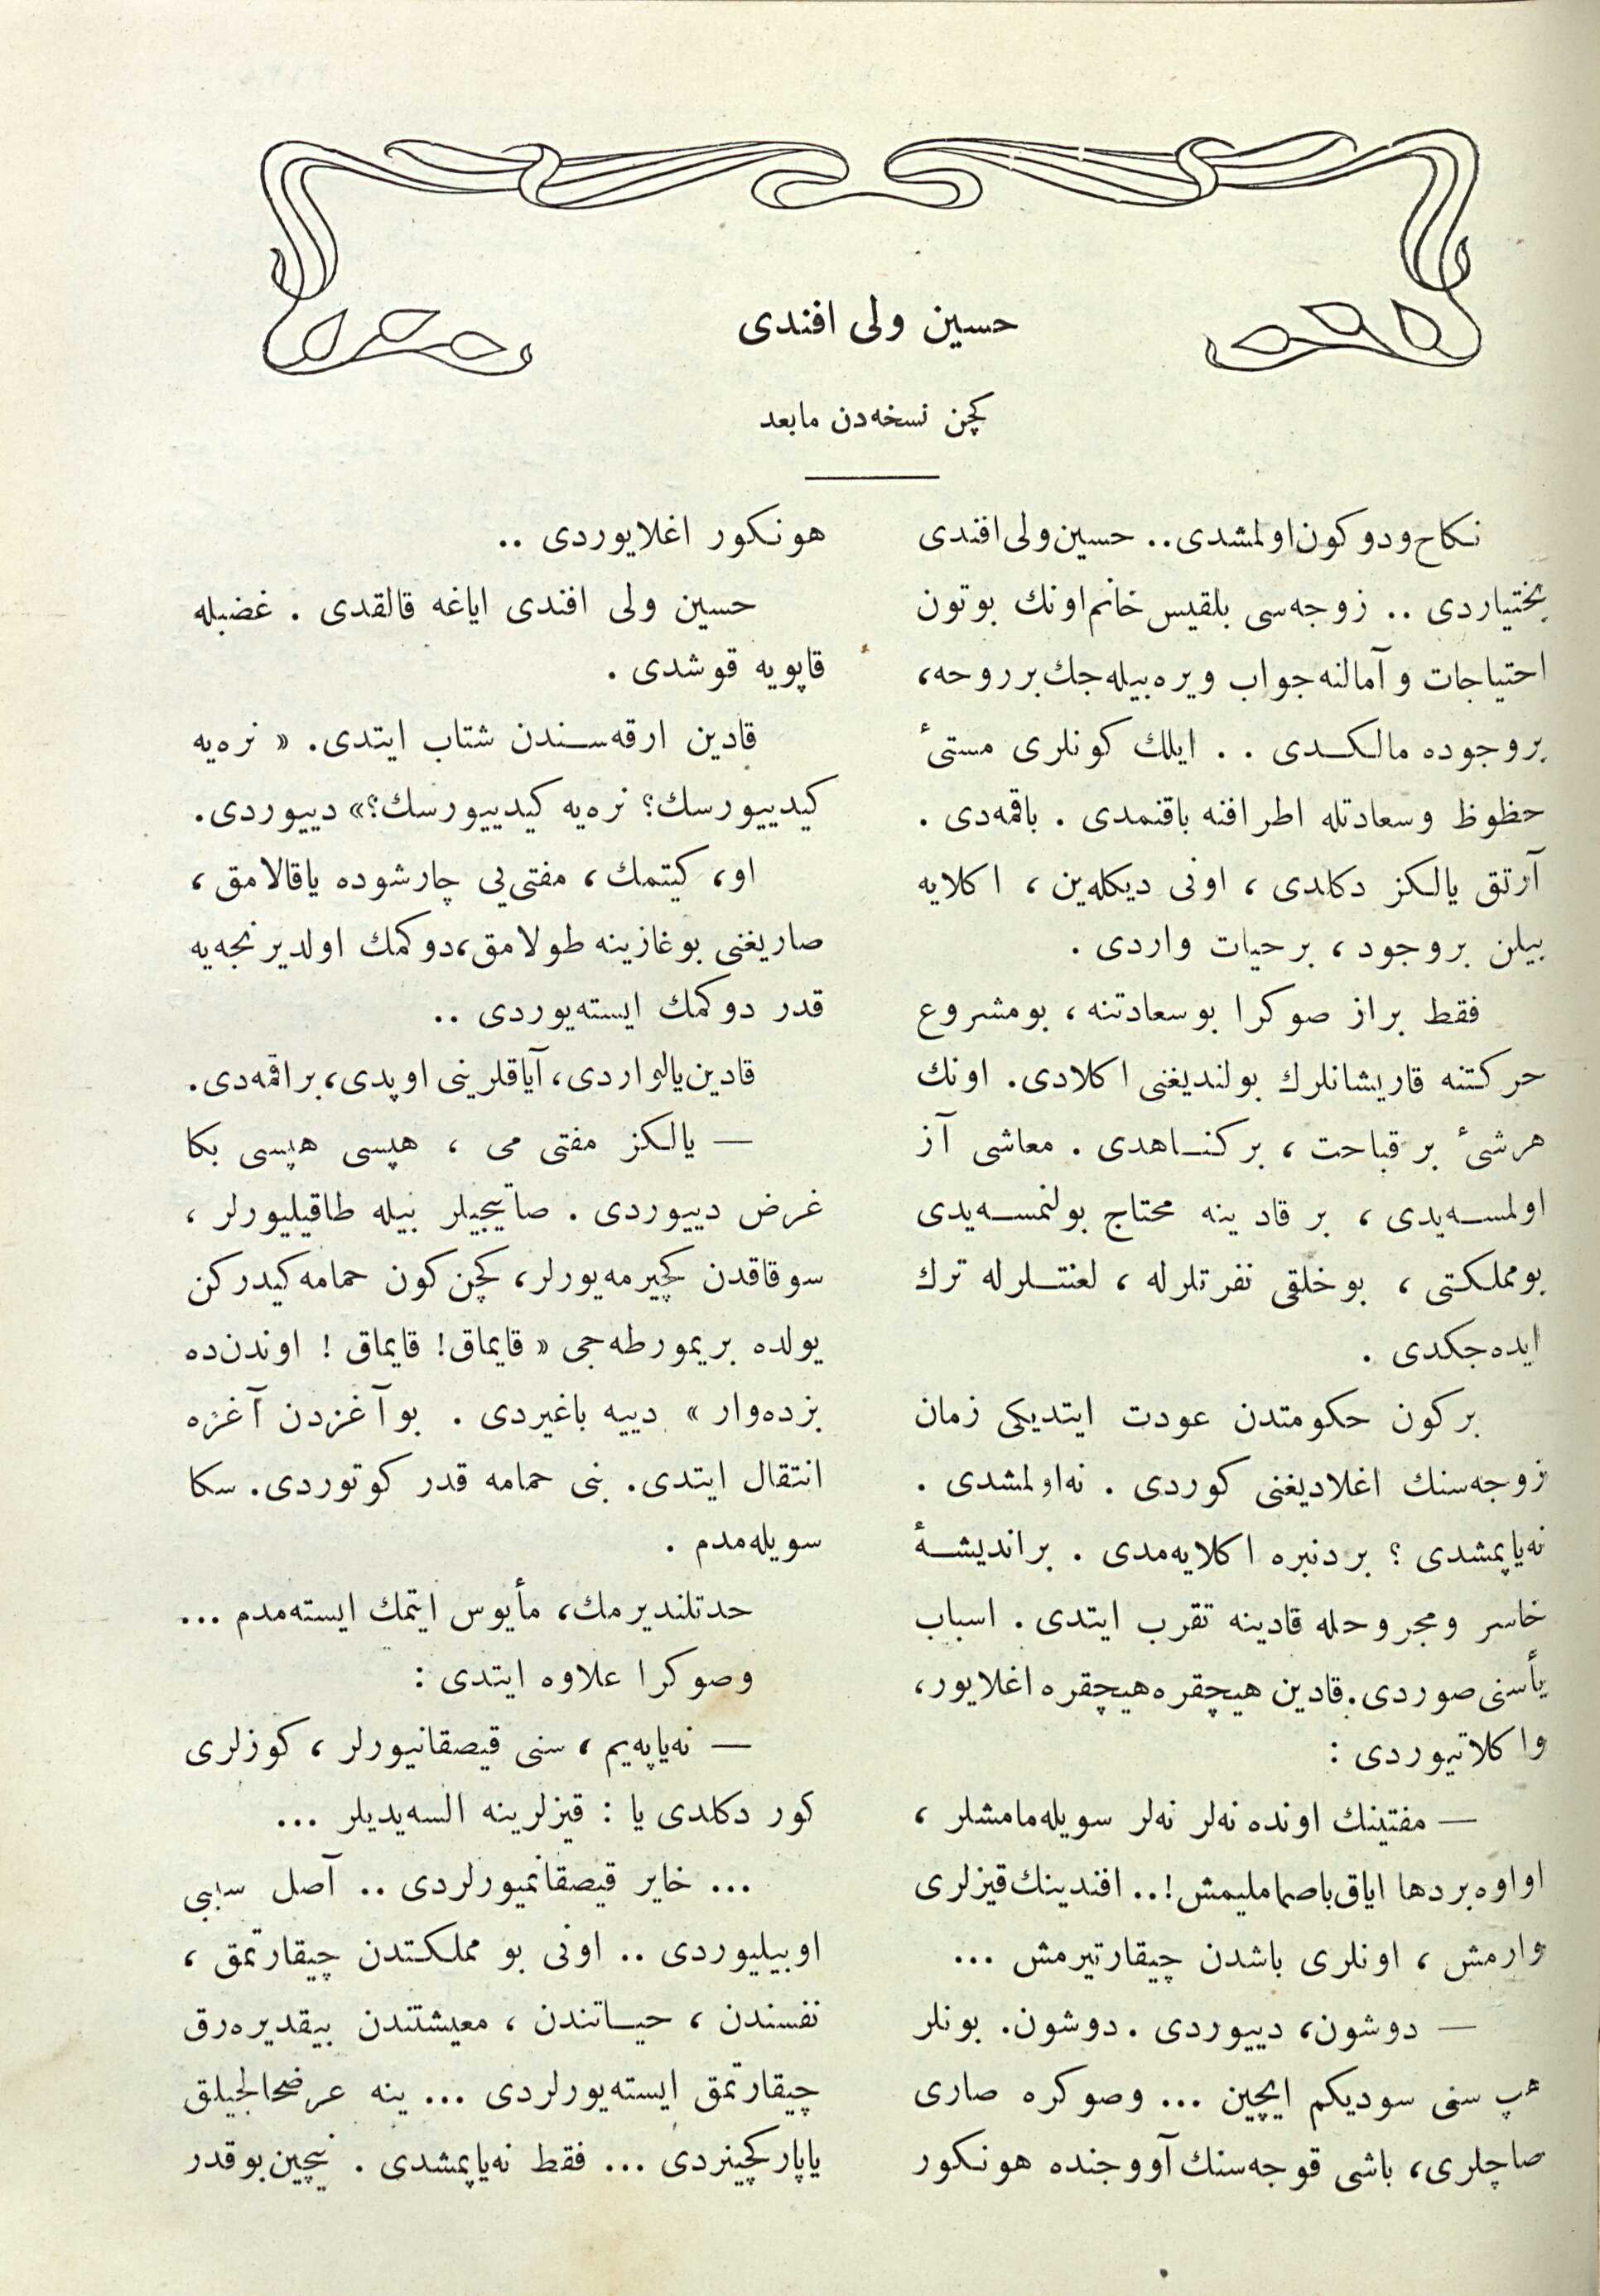 حسین ولی افندی
کچن نسخه‌دن مابعد
نکاح ودوکون اولمشدی.. حسین ولی افندی
بختیاردی .. زوجه‌سی بلقیس خانم اونك بوتون
احتیاجات و آمالنه جواب ویره‌بیله‌جك بر روحه،
بر وجوده مالکدی . . ایلك کونلری مستیٔ
حظوظ وسعادتله اطرافنه باقنمدی . باقمه‌دی .
آرتق یالکز دکلدی ، اونی دیکله‌ین ، اکلایه
بیلن بروجود ، برحیات واردی .
فقط براز صوکرا بوسعادتنه ، بومشروع
حرکتنه قاریشانلرك بولندیغنی اکلادی. اونك
هرشیٔ برقباحت ، برکناهدی . معاشی آز
اولمسه‌یدی ، بر قادینه محتاج بولنمسه‌یدی
بومملکتی ، بوخلقی نفرتلرله ، لعنتلرله ترك
ایده‌جکدی .
برکون حکومتدن عودت ایتدیکی زمان
زوجه‌سنك اغلادیغنی کوردی . نه‌اولمشدی .
نه‌یاپمشدی ؟ بردنبره اکلایه‌مدی . براندیشهٔ
خاسر ومجروحله قادینه تقرب ایتدی . اسباب
یأسنی صوردی. قادین هیچقره‌هیچقره اغلایور،
واکلاتیوردی :
— مفتینك اونده نه‌لر نه‌لر سویله‌مامشلر ،
اواوه بردها ایاق باصماملیمش!.. افندینك قیزلری
وارمش ، اونلری باشدن چیقارتیرمش ...
— دوشون، دییوردی . دوشون. بونلر
هپ سنی سودیکم ایچین ... وصوکره صاری
صاچلری، باشی قوجه‌سنك آووجنده هونکور
هونکور اغلایوردی ..
حسین ولی افندی ایاغه قالقدی . غضبله
قاپویه قوشدی .
قادین ارقه‌سندن شتاب ایتدی. « نره‌یه
کیدییورسك؟ نره‌یه کیدییورسك؟» دییوردی.
او، کیتمك، مفتی‌یی چارشوده یاقالامق ،
صاریغنی بوغازینه طولامق،دوکمك اولدیرنجه‌یه
قدر دوکمك ایسته‌یوردی ..
قادین‌یالواردی،آیاقلرینی اوپدی، براقمه‌دی.
— یالکز مفتی می ، هپسی هپسی بکا
غرض دییوردی . صاتیجیلر بیله طاقیلیورلر ،
سوقاقدن کچیرمه‌یورلر، کچن کون حمامه کیدرکن
یولده بریمورطه‌جی « قایماق! قایماق ! اوندن‌ده
بزده‌وار » دییه باغیردی . بوآغزدن آغزه
انتقال ایتدی. بنی حمامه قدر کوتوردی. سکا
سویله‌مدم .
حدتلندیرمك، مأیوس ایتمك ایسته‌مدم ...
وصوکرا علاوه ایتدی :
— نه‌یاپه‌یم ، سنی قیصقانیورلر ، کوزلری
کور دکلدی یا : قیزلرینه السه‌یدیلر ...
... خایر قیصقانمیورلردی .. آصل سببی
اوبیلیوردی .. اونی بو مملکتدن چیقارتمق ،
نفسندن ، حیاتندن ، معیشتندن بیقدیره‌رق
چیقارتمق ایسته‌یورلردی ... ینه عرضحالجیلق
یاپارکچینردی ... فقط نه‌یاپمشدی . نیچین‌بوقدر